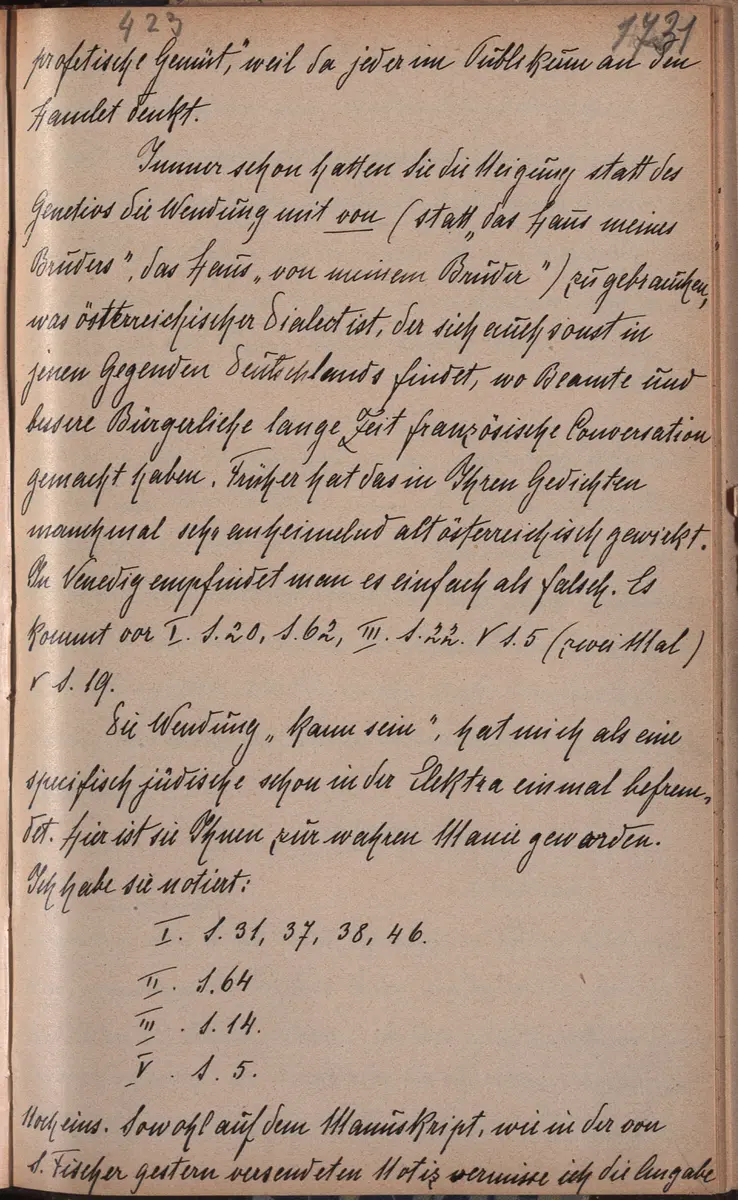 423 1731
profetische Gemüt,“ weil da jeder im Publikum an den
Hamlet denkt.
Immer schon hatten Sie die Neigung statt des
Genetivs die Wendung mit von (statt „das Haus meines
Bruders“, das Haus „von meinem Bruder“) zu gebrauchen,
was österreichischer Dialect ist, der sich auch sonst in
jenen Gegenden Deutschlands findet, wo Beamte und
bessere Bürgerliche lange Zeit französische Conversation
gemacht haben. Früher hat das in Ihren Gedichten
manchmal sehr anheimelnd altösterreichisch gewirkt.
In Venedig empfindet man es einfach als falsch. Es
kommt vor I. S. 20, S. 62, III. S. 22. V S. 5 (zwei Mal)
V S. 19.
Die Wendung „kann sein“, hat mich als eine
specifisch jüdische schon in der Elektra einmal befrem-
det. Hier ist sie Ihnen zur wahren Manie geworden.
Ich habe sie notiert:
I. S. 31, 37, 38, 46.
II. S. 64
III. S. 14.
V. S. 5.
Noch eins. Sowohl auf dem Manuskript, wie in der von
S. Fischer gestern versendeten Notiz vermisse ich die Angabe